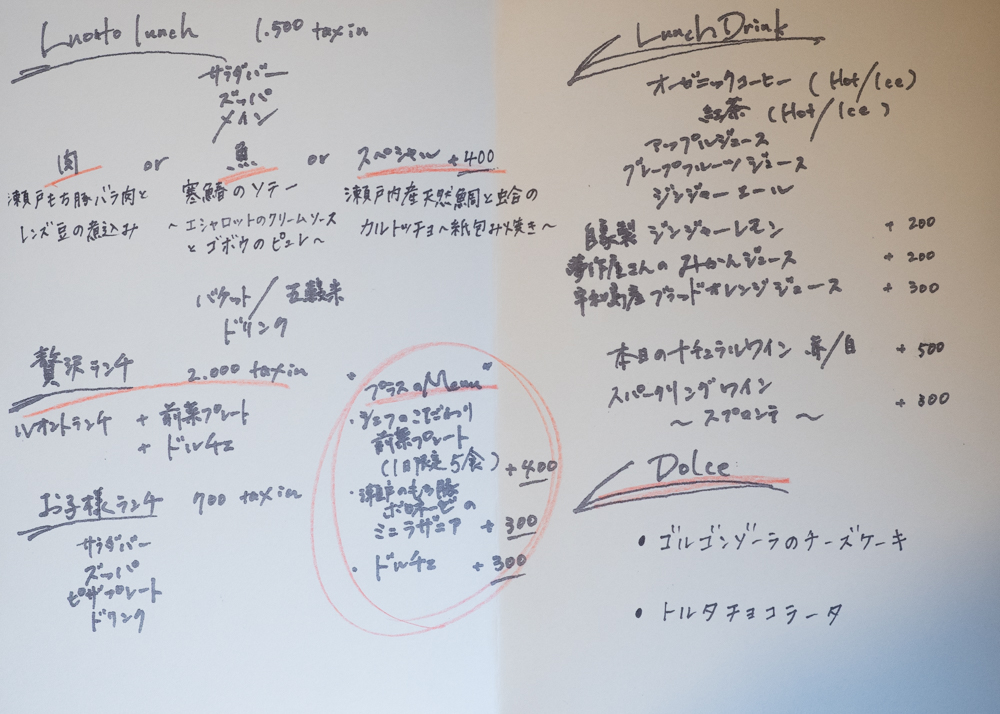 Luogo lunch 1.500 tax in
サラダバー
ズッパ
メイン
肉 or 魚 or スペシャル +400
瀬戸もち豚バラ肉と
レンズ豆の煮込み
寒鰆のソテー
～エシャロットのクリームソース
とゴボウのピュレ～
瀬戸内産天然鯛と蛤の
カルトッチョ～紙包み焼き～
バケット/五穀米
ドリンク
贅沢ランチ 2.000 tax in
ルオントランチ + 前菜プレート
+ ドルチェ
お子様ランチ 700 tax in
サラダバー
ズッパ
ピザプレート
ドリンク
"プラスのMenu"
・シェフのこだわり
前菜プレート
(1日限定5食) +400
・瀬戸のもち豚
ボロネーゼの
ミニラザニア +300
・ドルチェ +300
Lunch Drink
オーガニックコーヒー (Hot/Ice)
紅茶 (Hot/Ice)
アップルジュース
グレープフルーツジュース
ジンジャーエール
自家製ジンジャーレモン +200
夢作屋さんのみかんジュース +200
宇和島産ブラッドオレンジジュース +300
本日のナチュラルワイン 赤/白 +500
スパークリングワイン
～スプマンテ～ +300
Dolce
・ゴルゴンゾーラのチーズケーキ
・トルタチョコラータ